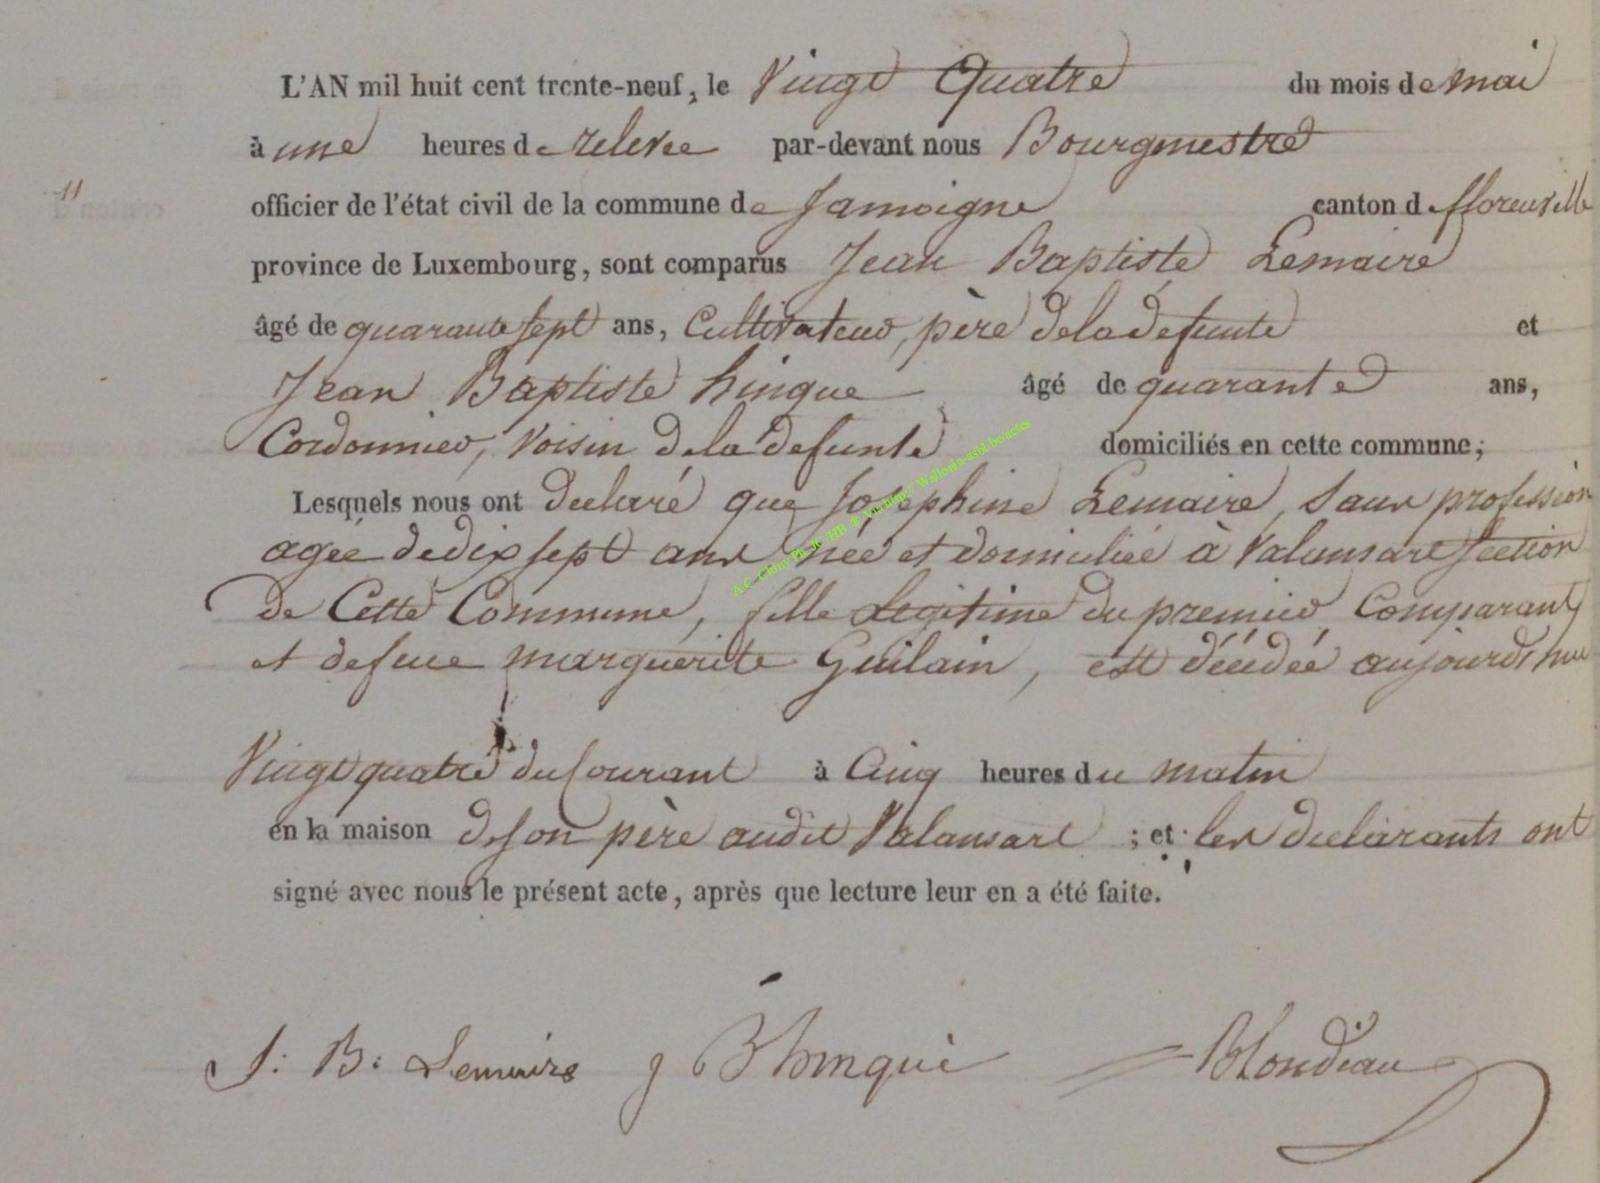 L'AN mil huit cent trente-neuf, le Vingt Quatre du mois de mai
à une heures de relevée par-devant nous Bourgmestre
11
officier de l'état civil de la commune de Jamoigne canton d fflorenville
province de Luxembourg, sont comparus Jean Baptiste Lemaire
âgé de quarante sept ans, Cultivateur, père de la défunte et
Jean Baptiste hinque âgé de quarante ans,
Cordonnier, Voisin de la défunte domiciliés en cette commune;
Lesquels nous ont declaré que Josephine Lemaire, sans profession
agée de dix sept ans née et domiciliée à Valansart section
de Cette Commune, fille Legitime du premier Comparant
et defeue marguerite Guilain, est décédée aujourd'hui
Vingt quatre du Courant à Cinq heures du matin
en la maison de son père audit Valansart ; et les declarants ont
signé avec nous le présent acte, après que lecture leur en a été faite.
J: B: Lemaire j B hinque Blondeau